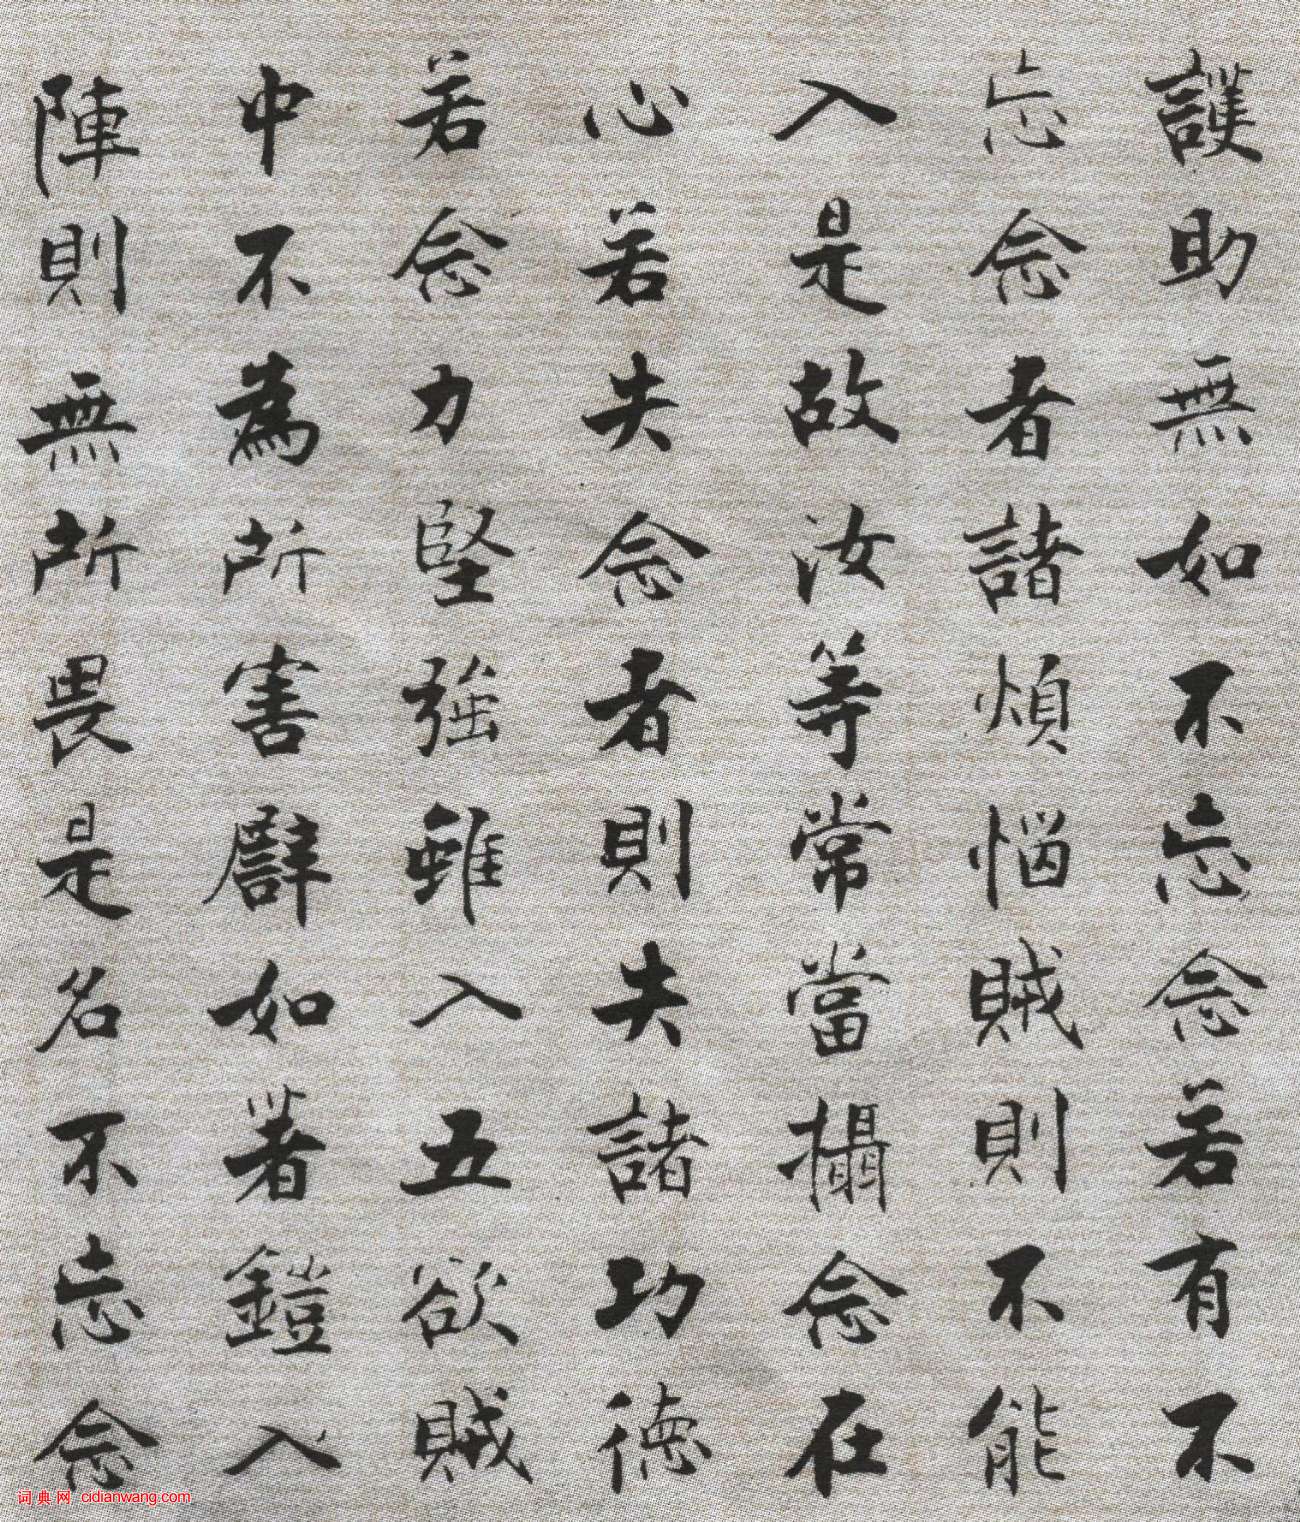 護助無如不忘念若有不
忘念者諸煩惱賊則不能
入是故汝等常當攝念在
心若失念者則失諸功德
若念力堅強雖入五欲賊
中不為所害譬如著鎧入
陣則無所畏是名不忘念
词典网 cidianwang.com